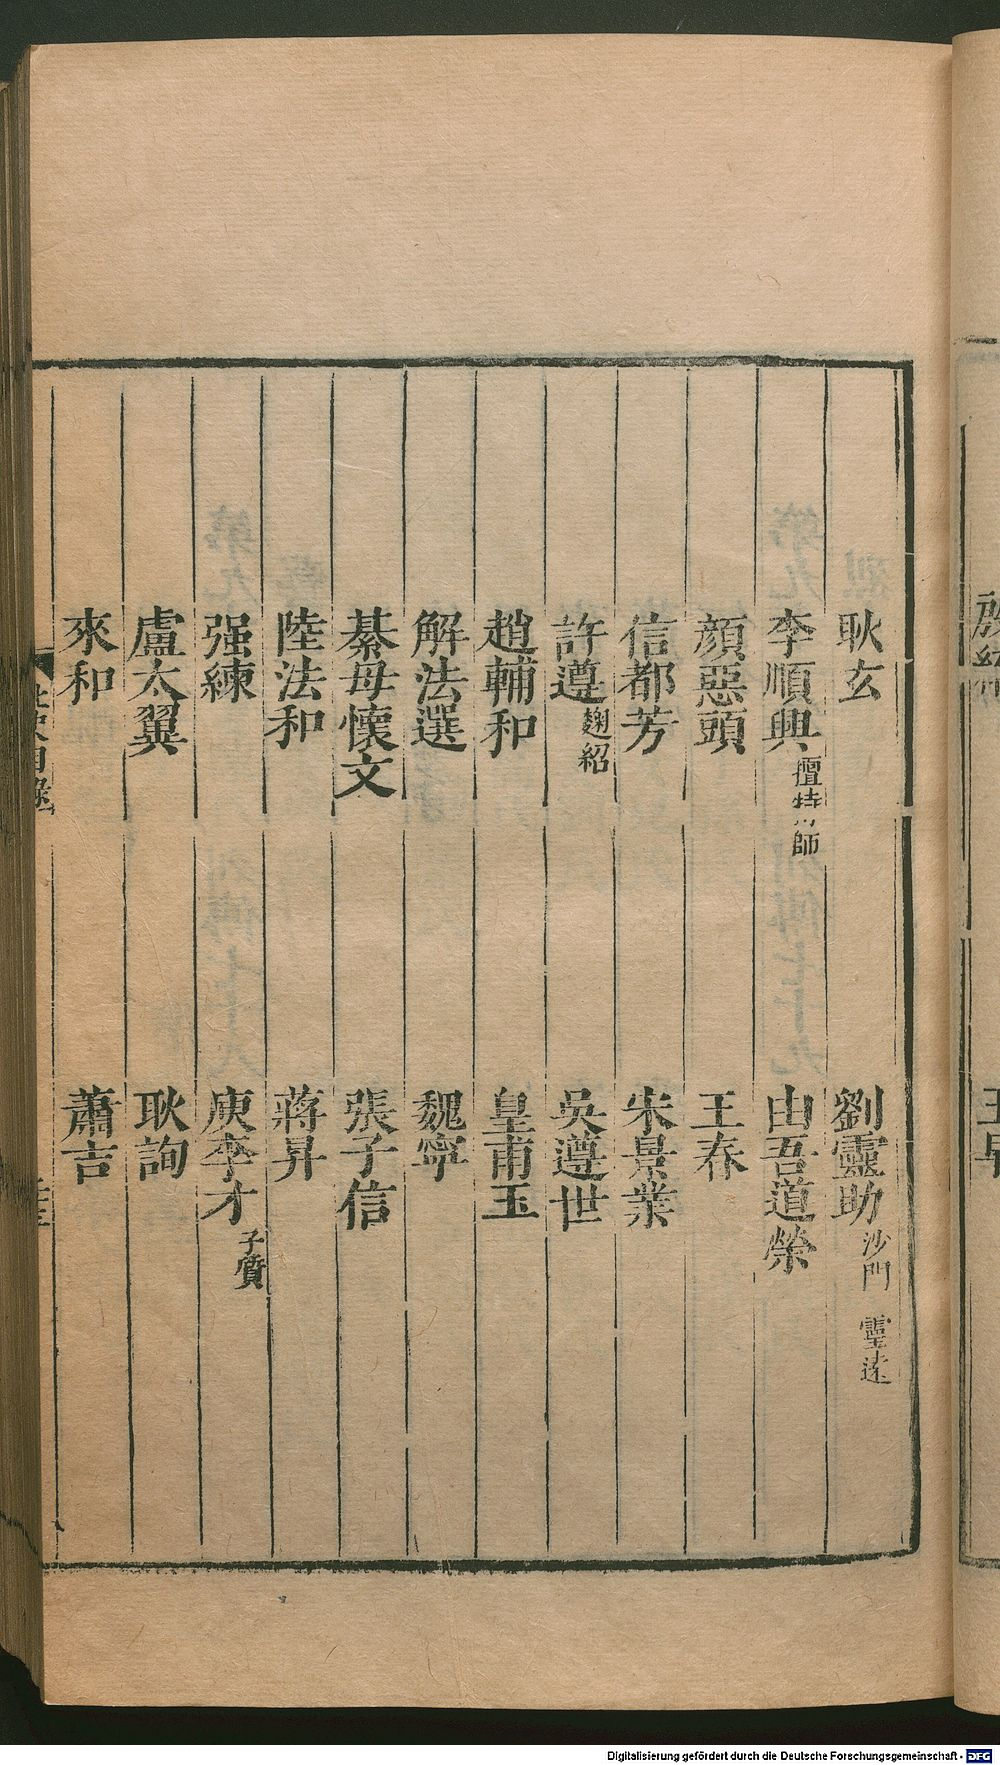 耿玄 劉靈助 沙門 靈遠
李順興 檀特師 由吾道榮
顔惡頭 王春
信都芳 宋景業
許遵 麹紹 吳遵世
趙輔和 皇甫玉
解法選 魏寧
綦母懷文 張子信
陸法和 蔣昇
强練 庾季才 子質
盧太翼 耿詢
來和 蕭吉
史目錄
王早
Digitalisierung gefördert durch die Deutsche Forschungsgemeinschaft - DFG